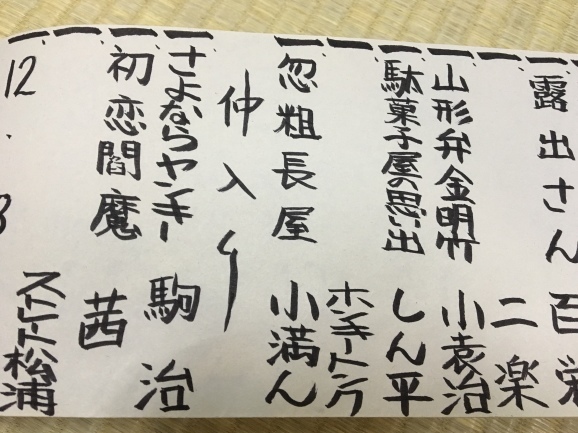 一 露出さん 百栄
一 二楽
一 山形弁金明竹 小袁治
一 駄菓子屋の思い出 しん平
ホンキートンク
一 忽粗長屋 小満ん
仲入り
一 さよならヤンキー 駒治
一 初恋閻魔 茜
一 ストレート松浦
12